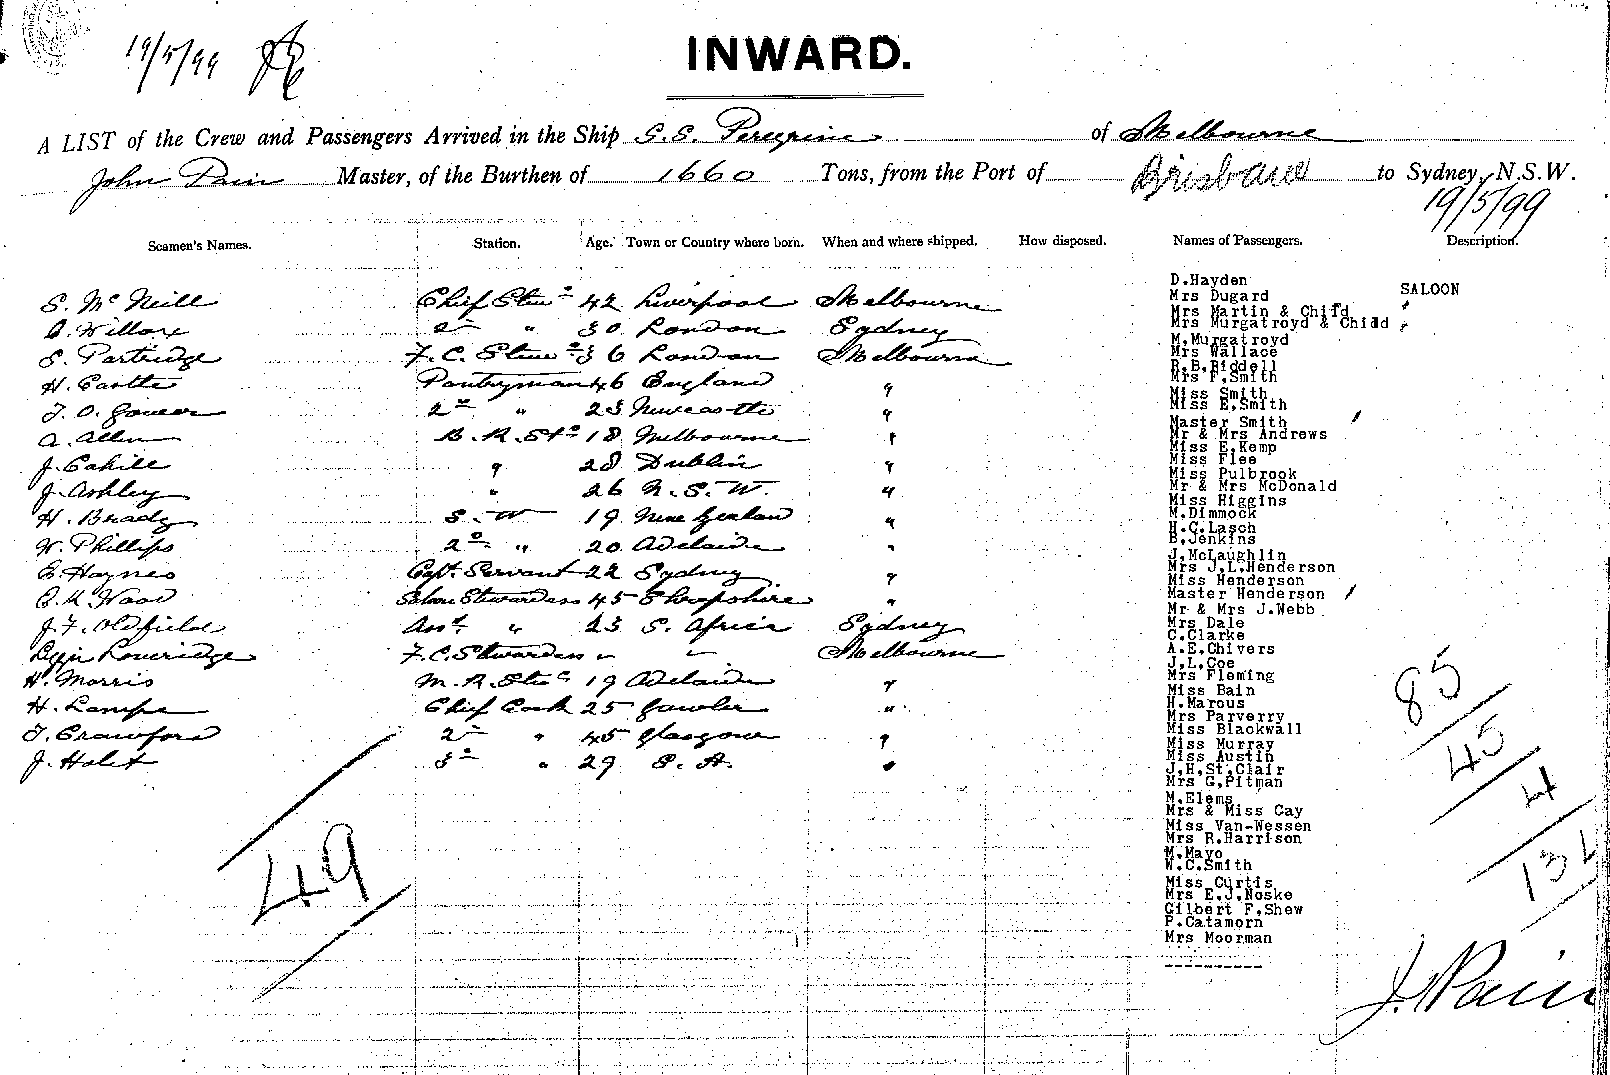 19/5/99
INWARD.
A LIST of the Crew and Passengers Arrived in the Ship S.S. Peregrine of Melbourne
John Pain Master, of the Burthen of 1660 Tons, from the Port of Brisbane to Sydney, N.S.W.
19/5/99
Seamen's Names. Station. Age. Town or Country where born. When and where shipped. How disposed. Names of Passengers. Description.
S. McNeill Chief Stew 42 Liverpool Melbourne
2 " 30 London Sydney
S. Partridge F.C. Stew 36 London Melbourne
H. Castle Pantryman 46 England "
2 " 23 Newcastle "
A. Allen B.R. St 18 Melbourne "
J. Cahill " 28 Dublin "
J. Ashley " 26 N.S.W. "
H. Brady S.W 19 New Zealand "
W. Phillips 2 " 20 Adelaide "
E. Haynes Capt. Servant 22 Sydney "
Wood Saloon Stewardess 45 Shropshire "
J.F. Oldfield Asst. " 23 S. Africa Sydney
Loveridge F.C. Stewardess " " Melbourne
H. Morris M.R. Stew 19 Adelaide "
H. Lampe Chief Cook 25 Gawler "
T. Crawford 2 " 45 Glasgow "
J. Holst 3 " 29 S.A. "
49
D.Hayden
Mrs Dugard SALOON
Mrs Martin & Child "
Mrs Murgatroyd & Child "
M.Murgatroyd
Mrs Wallace
R.B.Riddell
Mrs F.Smith
Miss Smith
Miss E.Smith
Master Smith
Mr & Mrs Andrews
Miss E.Kemp
Miss Flee
Miss Pulbrook
Mr & Mrs McDonald
Miss Higgins
M.Dimmock
H.C.Lasch
B.Jenkins
J.McLaughlin
Mrs J.L.Henderson
Miss Henderson
Master Henderson
Mr & Mrs J.Webb
Mrs Dale
C.Clarke
A.E.Chivers
J.L.Coe
Mrs Fleming
Miss Bain
H.Marous
Mrs Parverry
Miss Blackwall
Miss Murray
Miss Austin
J.H.St.Clair
Mrs G.Pitman
M.Elems
Mrs & Miss Cay
Miss Van-Wessen
Mrs R.Harrison
M.Mayo
W.C.Smith
Miss Curtis
Mrs E.J.Noske
Gilbert F.Shew
P.Catamorn
Mrs Moorman
----------
85
45
4
J. Pain